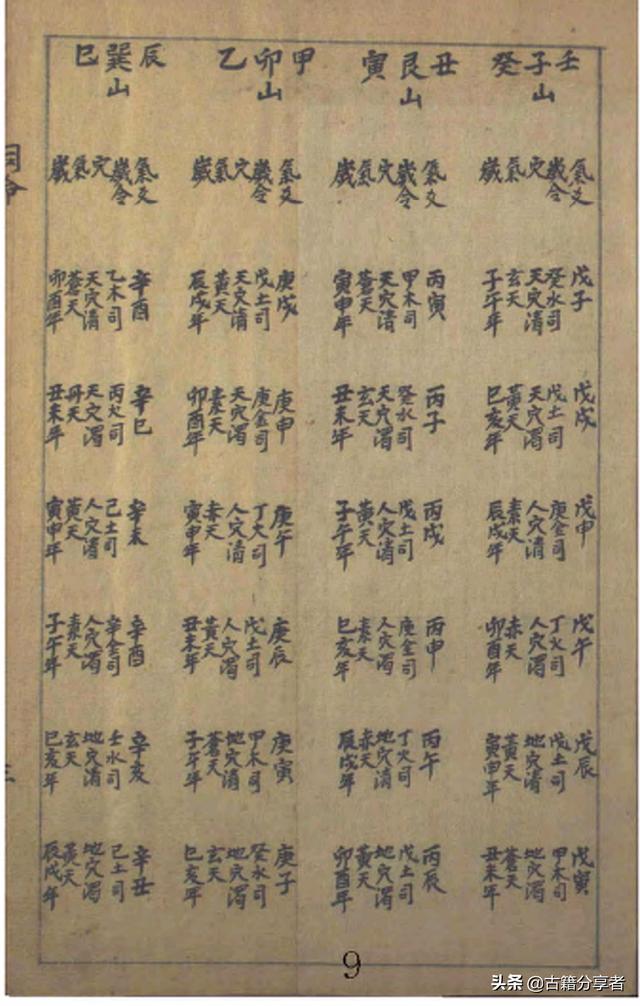 壬子山癸
氣爻
歲令
穴
氣
歲
戊子
癸水司
天穴清
玄天
子午年
戊戌
戊土司
天穴濁
黃天
巳亥年
戊申
庚金司
人穴清
素天
辰戌年
戊午
丁火司
人穴濁
赤天
卯酉年
戊辰
戊土司
地穴清
黃天
寅申年
戊寅
甲木司
地穴濁
蒼天
丑未年
丑艮山寅
氣爻
歲令
穴
氣
歲
丙寅
甲木司
天穴清
蒼天
寅申年
丙子
癸水司
天穴濁
玄天
丑未年
丙戌
戊土司
人穴清
黃天
子午年
丙申
庚金司
人穴濁
素天
巳亥年
丙午
丁火司
地穴清
赤天
辰戌年
丙辰
戊土司
地穴濁
黃天
卯酉年
甲卯山乙
氣爻
歲令
穴
氣
歲
庚戌
戊土司
天穴清
黃天
辰戌年
庚申
庚金司
天穴濁
素天
卯酉年
庚午
丁火司
人穴清
赤天
寅申年
庚辰
戊土司
人穴濁
黃天
丑未年
庚寅
甲木司
地穴清
蒼天
子午年
庚子
癸水司
地穴濁
玄天
巳亥年
辰巽山巳
氣爻
歲令
穴
氣
歲
辛酉
乙木司
天穴清
蒼天
卯酉年
辛巳
丙火司
天穴濁
丹天
丑未年
辛未
己土司
人穴清
黃天
寅申年
辛酉
辛金司
人穴濁
素天
子午年
辛亥
壬水司
地穴清
玄天
巳亥年
辛丑
己土司
地穴濁
黃天
辰戌年
9
头条 @古籍分享者